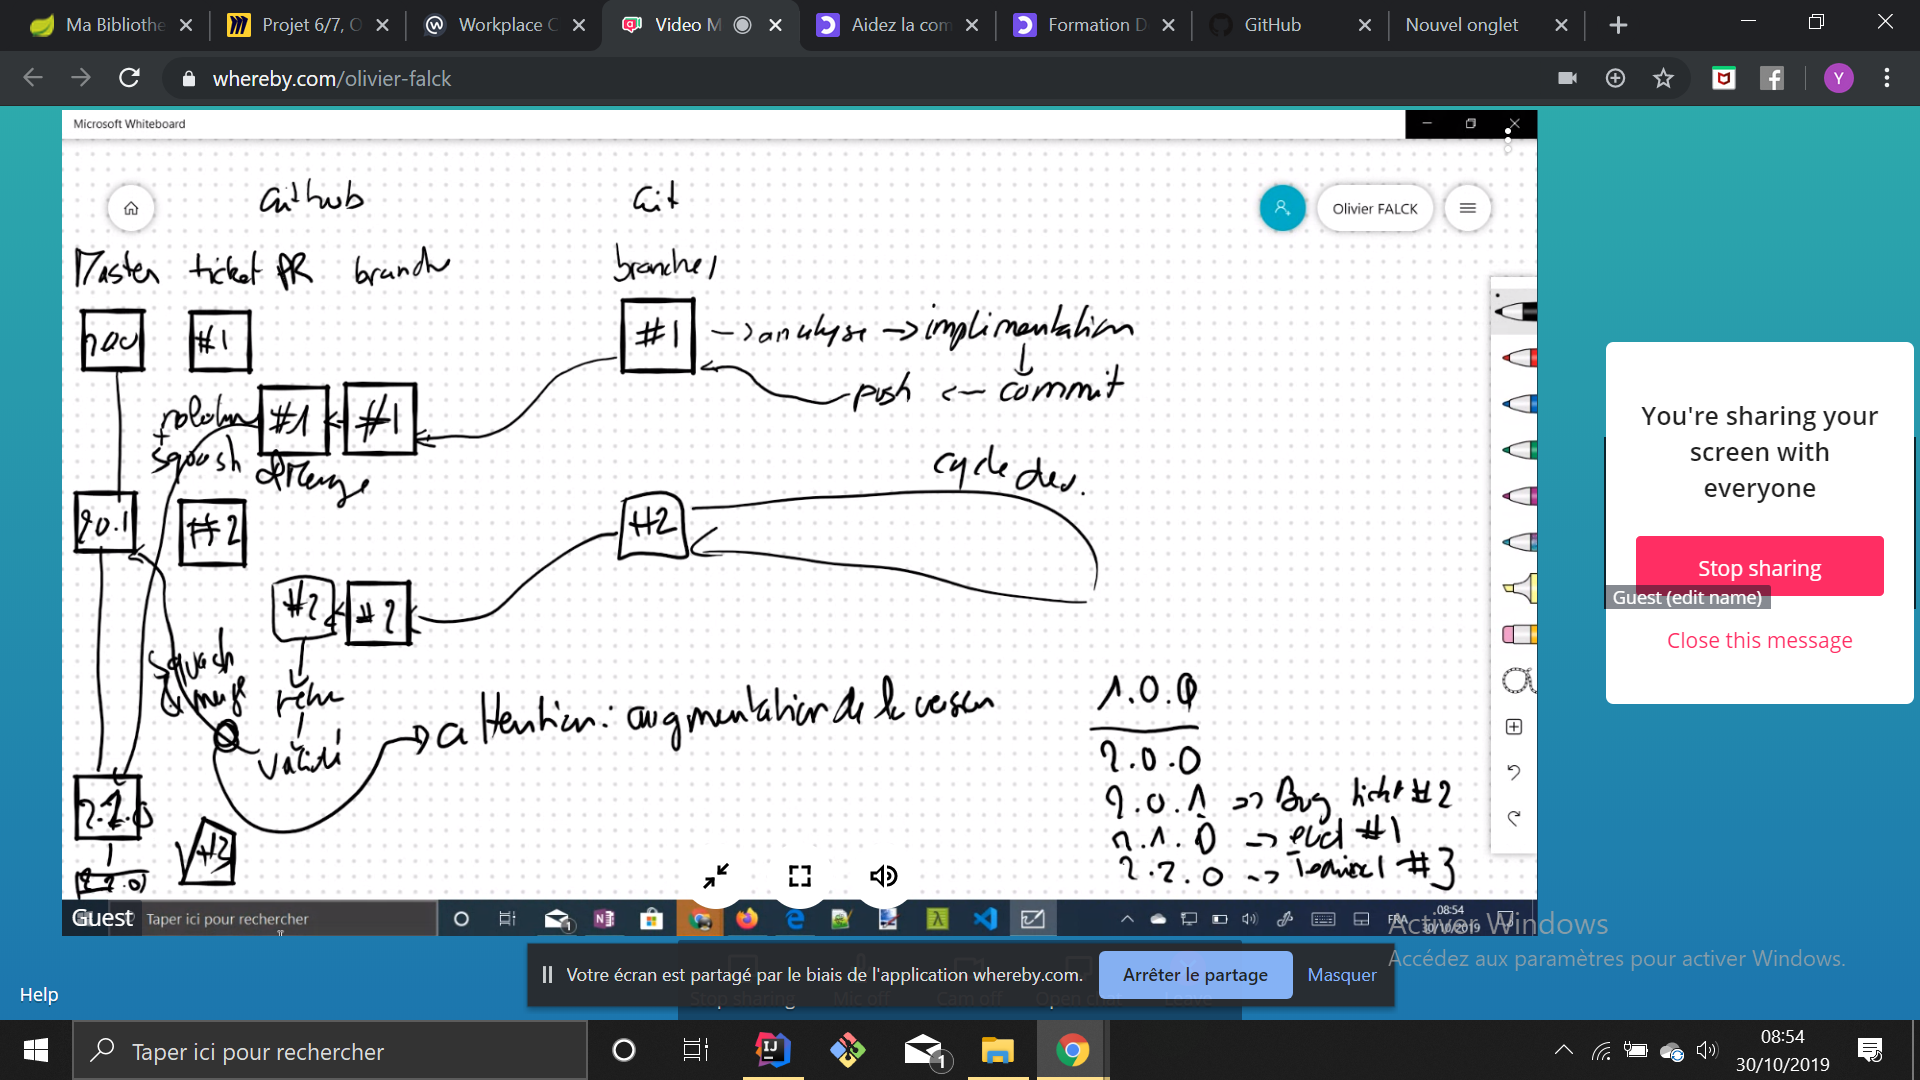 Ma Bibliothe
Projet 6/7, O
Workplace C
Video M
Aidez la com
Formation D
GitHub
Nouvel onglet
whereby.com/olivier-falck
Y
Microsoft Whiteboard
Github
Git
Olivier FALCK
Master ticket PR branch
branche1
#1
#1
-> analyse -> implimentation
push <- commit
#1
#1
+
squash
&Merge
cycle dev.
20.1
#2
#2
#2
#2
squash
& merge
validé
attention: augmentation de la version
1.0.0
2.0.0
2.0.1 => Bug ticket #2
2.1.0 -> #1
2.2.0 -> #3
2.1.0
#3
You're sharing your
screen with
everyone
Stop sharing
Guest (edit name)
Close this message
Guest
Taper ici pour rechercher
1
FRA
08:54
30/10/2019
Activer Windows
Accédez aux paramètres pour activer Windows.
Votre écran est partagé par le biais de l'application whereby.com.
Arrêter le partage
Masquer
Stop sharing
Mic off
Cam off
Open chat
Leave
Help
Taper ici pour rechercher
IJ
1
08:54
30/10/2019